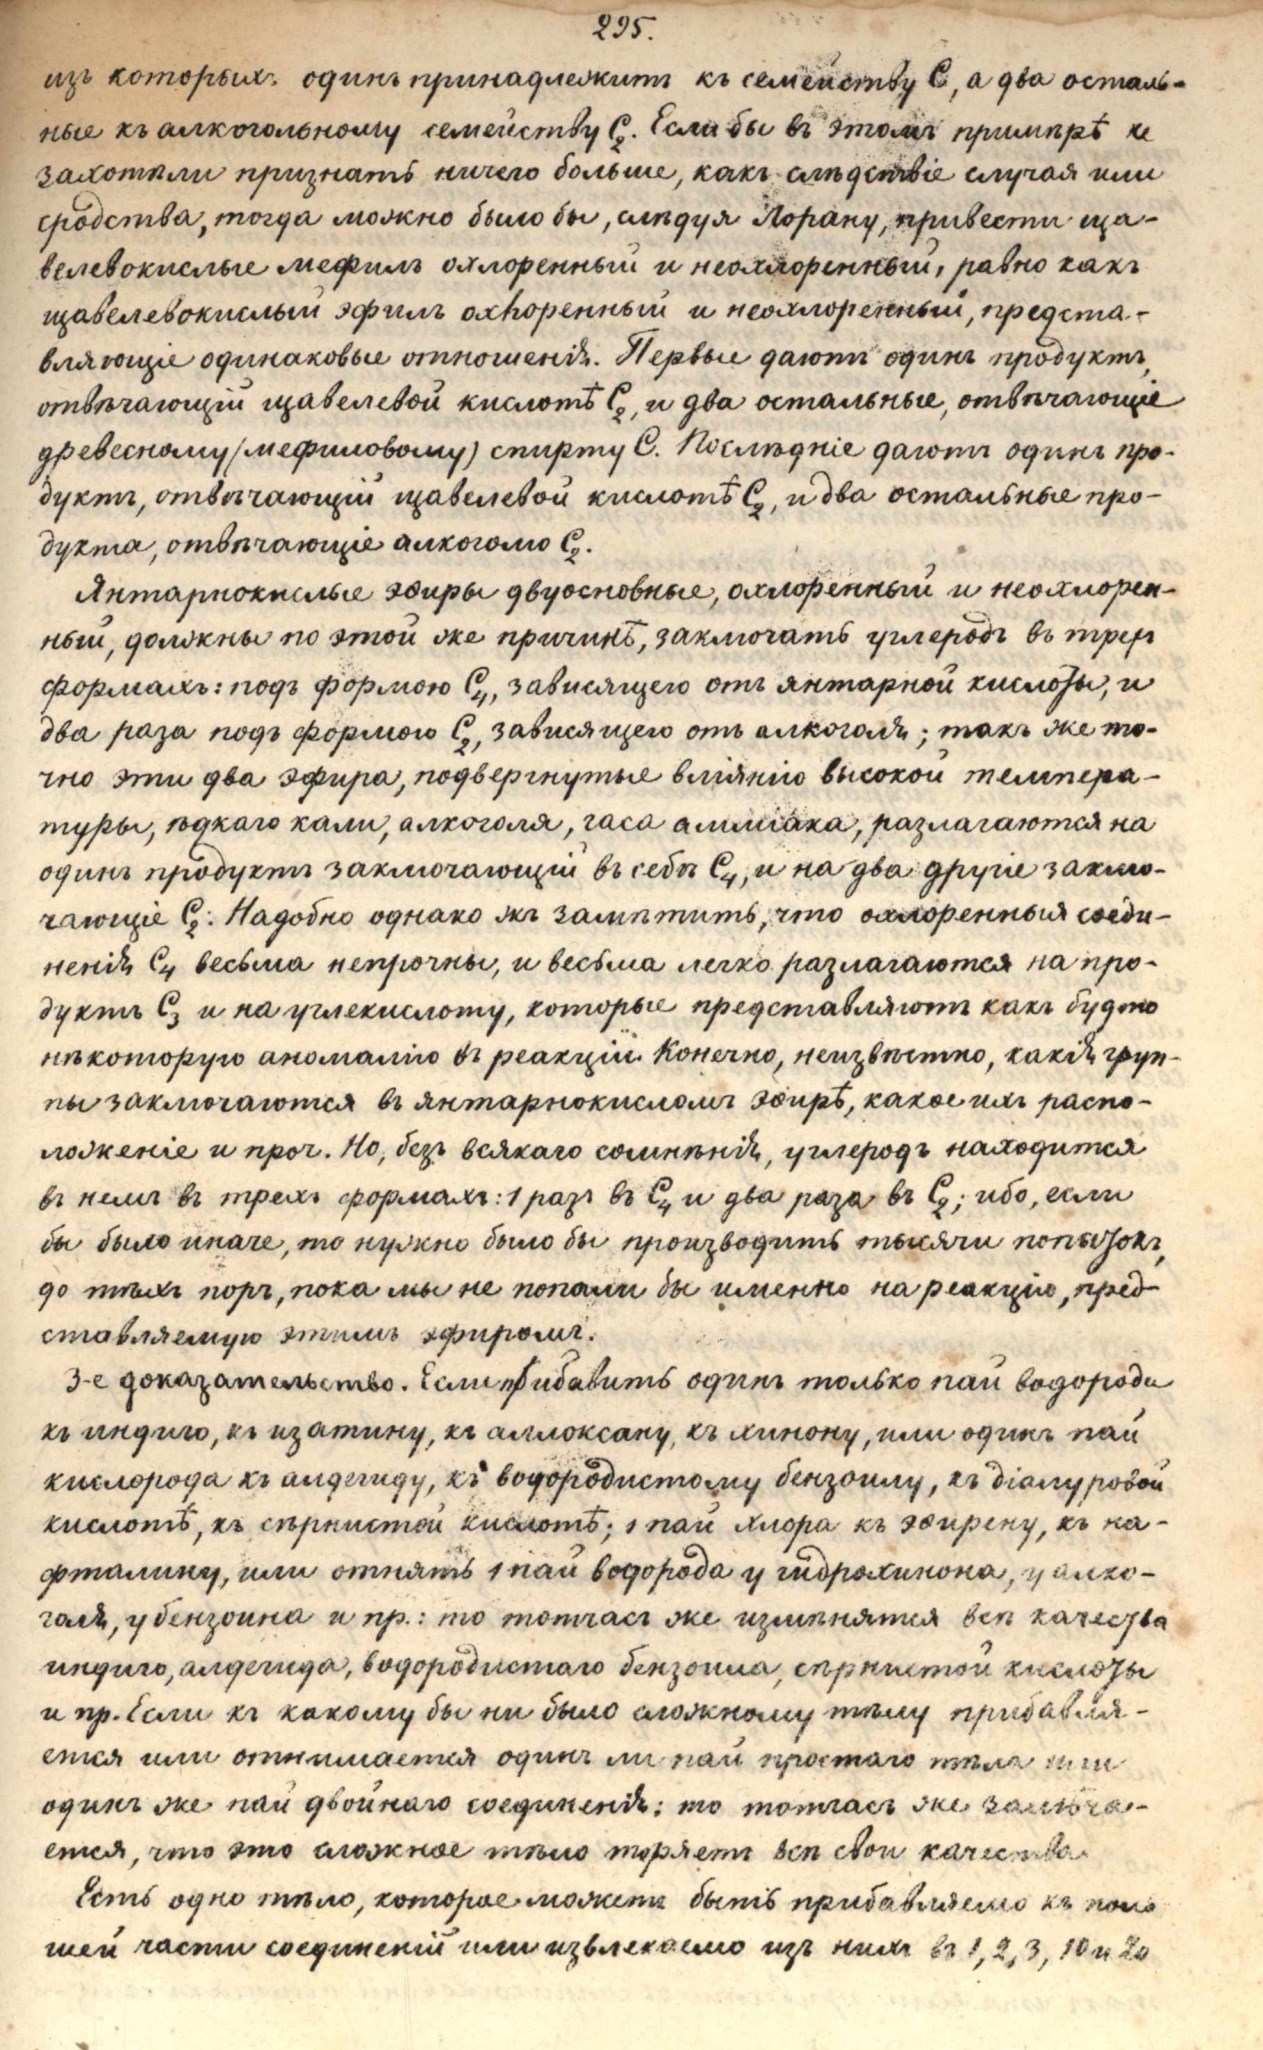 295.
изъ которыхъ одинъ принадлежитъ къ семейству С, а два осталь-
ные къ алкогольному семейству С₂. Если бы въ этомъ примѣрѣ не
захотѣли признать ничего больше, какъ слѣдствіе случая или
сродства, тогда можно было бы, слѣдуя Лорану, привести ща-
велевокислые мефилъ охлоренный и неохлоренный, равно какъ
щавелевокислый эфилъ охлоренный и неохлоренный, предста-
вляющіе одинаковые отношенія. Первые даютъ одинъ продуктъ,
отвѣчающій щавелевой кислотѣ С₂, и два остальные, отвѣчающіе
древесному (мефиловому) спирту С. Послѣдніе даютъ одинъ про-
дуктъ, отвѣчающій щавелевой кислотѣ С₂, и два остальные про-
дукта, отвѣчающіе алкоголю С₂.
Янтарнокислые эѳиры двуосновные, охлоренный и неохлорен-
ный, должны по этой же причинѣ, заключать углеродъ въ трехъ
формахъ: подъ формою С₄, зависящего отъ янтарной кислоты, и
два раза подъ формою С₂, зависящего отъ алкоголя; такъ же то-
чно эти два эфира, подвергнутые вліянію высокой темпера-
туры, ѣдкаго кали, алкоголя, газа амміака, разлагаются на
одинъ продуктъ заключающій въ себѣ С₄, и на два другіе заклю-
чающіе С₂. Надобно однако жъ замѣтить, что охлоренныя соеди-
ненія С₄ весьма непрочны, и весьма легко разлагаются на про-
дуктъ С₃ и на углекислоту, которые представляютъ какъ будто
нѣкоторую аномалію въ реакціи. Конечно, неизвѣстно, какія груп-
пы заключаются въ янтарнокисломъ эѳирѣ, какое ихъ распо-
ложеніе и проч. Но, безъ всякаго сомнѣнія, углеродъ находится
въ немъ въ трехъ формахъ: 1 разъ въ С₄ и два раза въ С₂; ибо, если
бы было иначе, то нужно было бы производить тысячи попытокъ,
до тѣхъ поръ, пока мы не попали бы именно на реакцію, пред-
ставляемую этимъ эфиромъ.
3-е доказательство. Если прибавить одинъ только пай водорода
къ индиго, къ изатину, къ аллоксану, къ хинону, или одинъ пай
кислорода къ алдегиду, къ водородистому бензоилу, къ діалуровой
кислотѣ, къ сѣрнистой кислотѣ; 1 пай хлора къ эѳирену, къ на-
фталину, или отнять 1 пай водорода у гидрохинона, у алко-
голя, у бензоина и пр.: то тотчасъ же измѣнятся всѣ качества
индиго, алдегида, водородистаго бензоила, сѣрнистой кислоты
и пр. Если къ какому бы ни было сложному тѣлу прибавля-
ется или отнимается одинъ ли пай простаго тѣла или
одинъ же пай двойнаго соединенія: то тотчасъ же замѣча-
ется, что это сложное тѣло теряетъ всѣ свои качества.
Есть одно тѣло, которое можетъ быть прибавляемо къ
шей части соединеній или извлекаемо изъ нихъ въ 1, 2, 3, 10 и 20